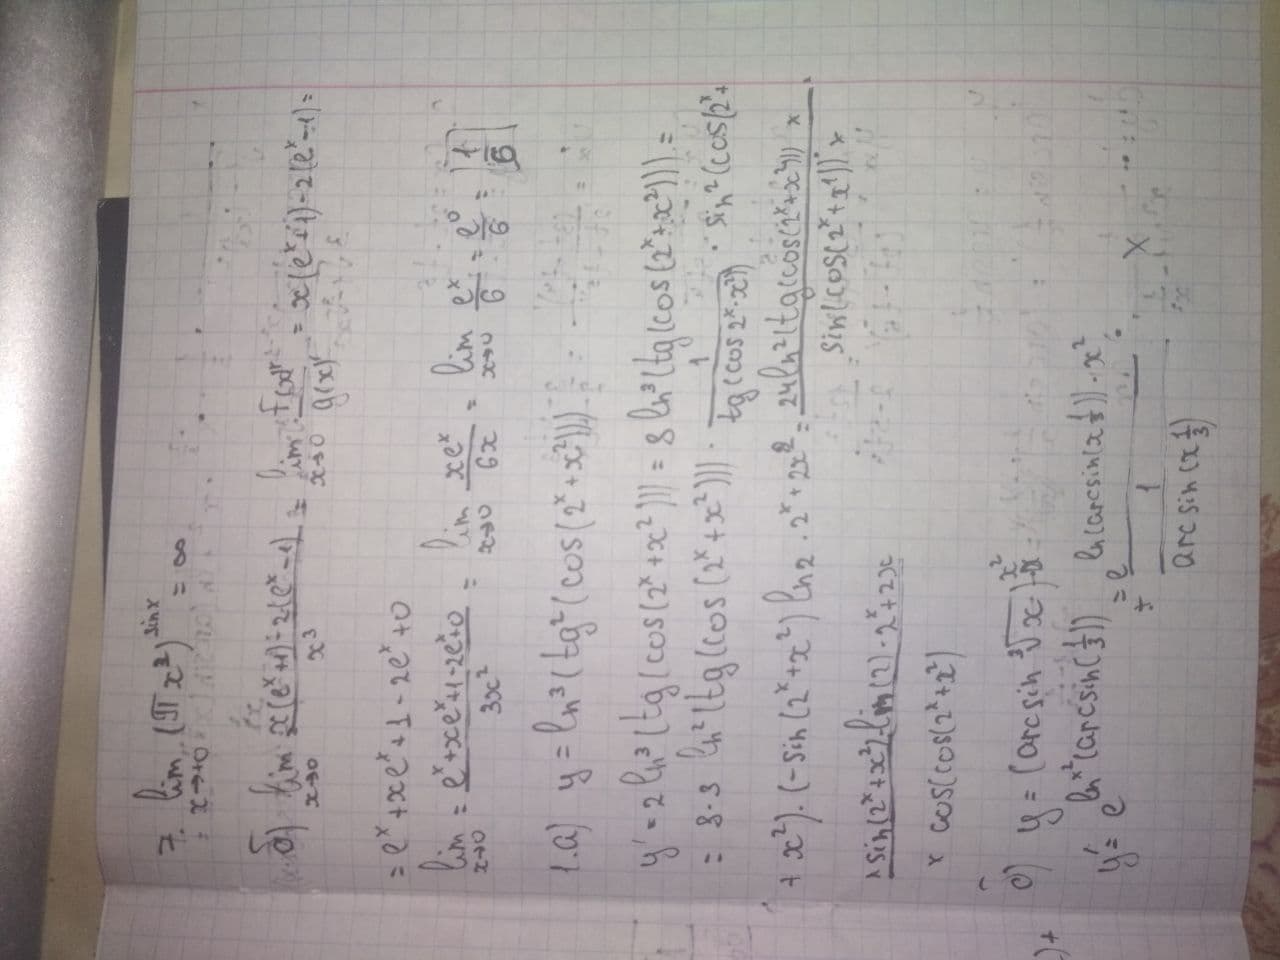 7. lim x→+0 (πx²)^sin x = ∞
б) lim x→0 (x(e^x+1)-2(e^x-1))/x³ = lim x→0 f(x)'/g(x)' = x(e^x+1)-2(e^x-1)=
= e^x + xe^x + 1 - 2e^x + 0
lim x→0 = (e^x+xe^x+1-2e^x+0)/3x² = lim x→0 xe^x/6x = lim x→0 e^x/6 = e^0/6 = 1/6
1.а) y = ln³(tg²(cos(2^x+x²)))
y' = 2 ln³(tg(cos(2^x+x²))) = 8 ln³(tg(cos(2^x+x²))) =
= 8·3 ln²(tg(cos(2^x+x²))) · 1/tg(cos2^x·x²)) · sin²(cos(2^x+
+ x²)·(-sin(2^x+x²) ln2 · 2^x+2x² = 24ln²(tg(cos(2^x+x²))) × / sin(cos(2^x+x¹)) ×
× sin(2^x+x²)·lm(2)·2^x+2x
× cos(cos(2^x+x²)
б) y = (arcsin ³√x)^x²
y' = e^ln^x²(arcsin(1/3)) = e^ln(arcsin(x 1/3))·x² / 1/arcsin(x 1/3) · ×